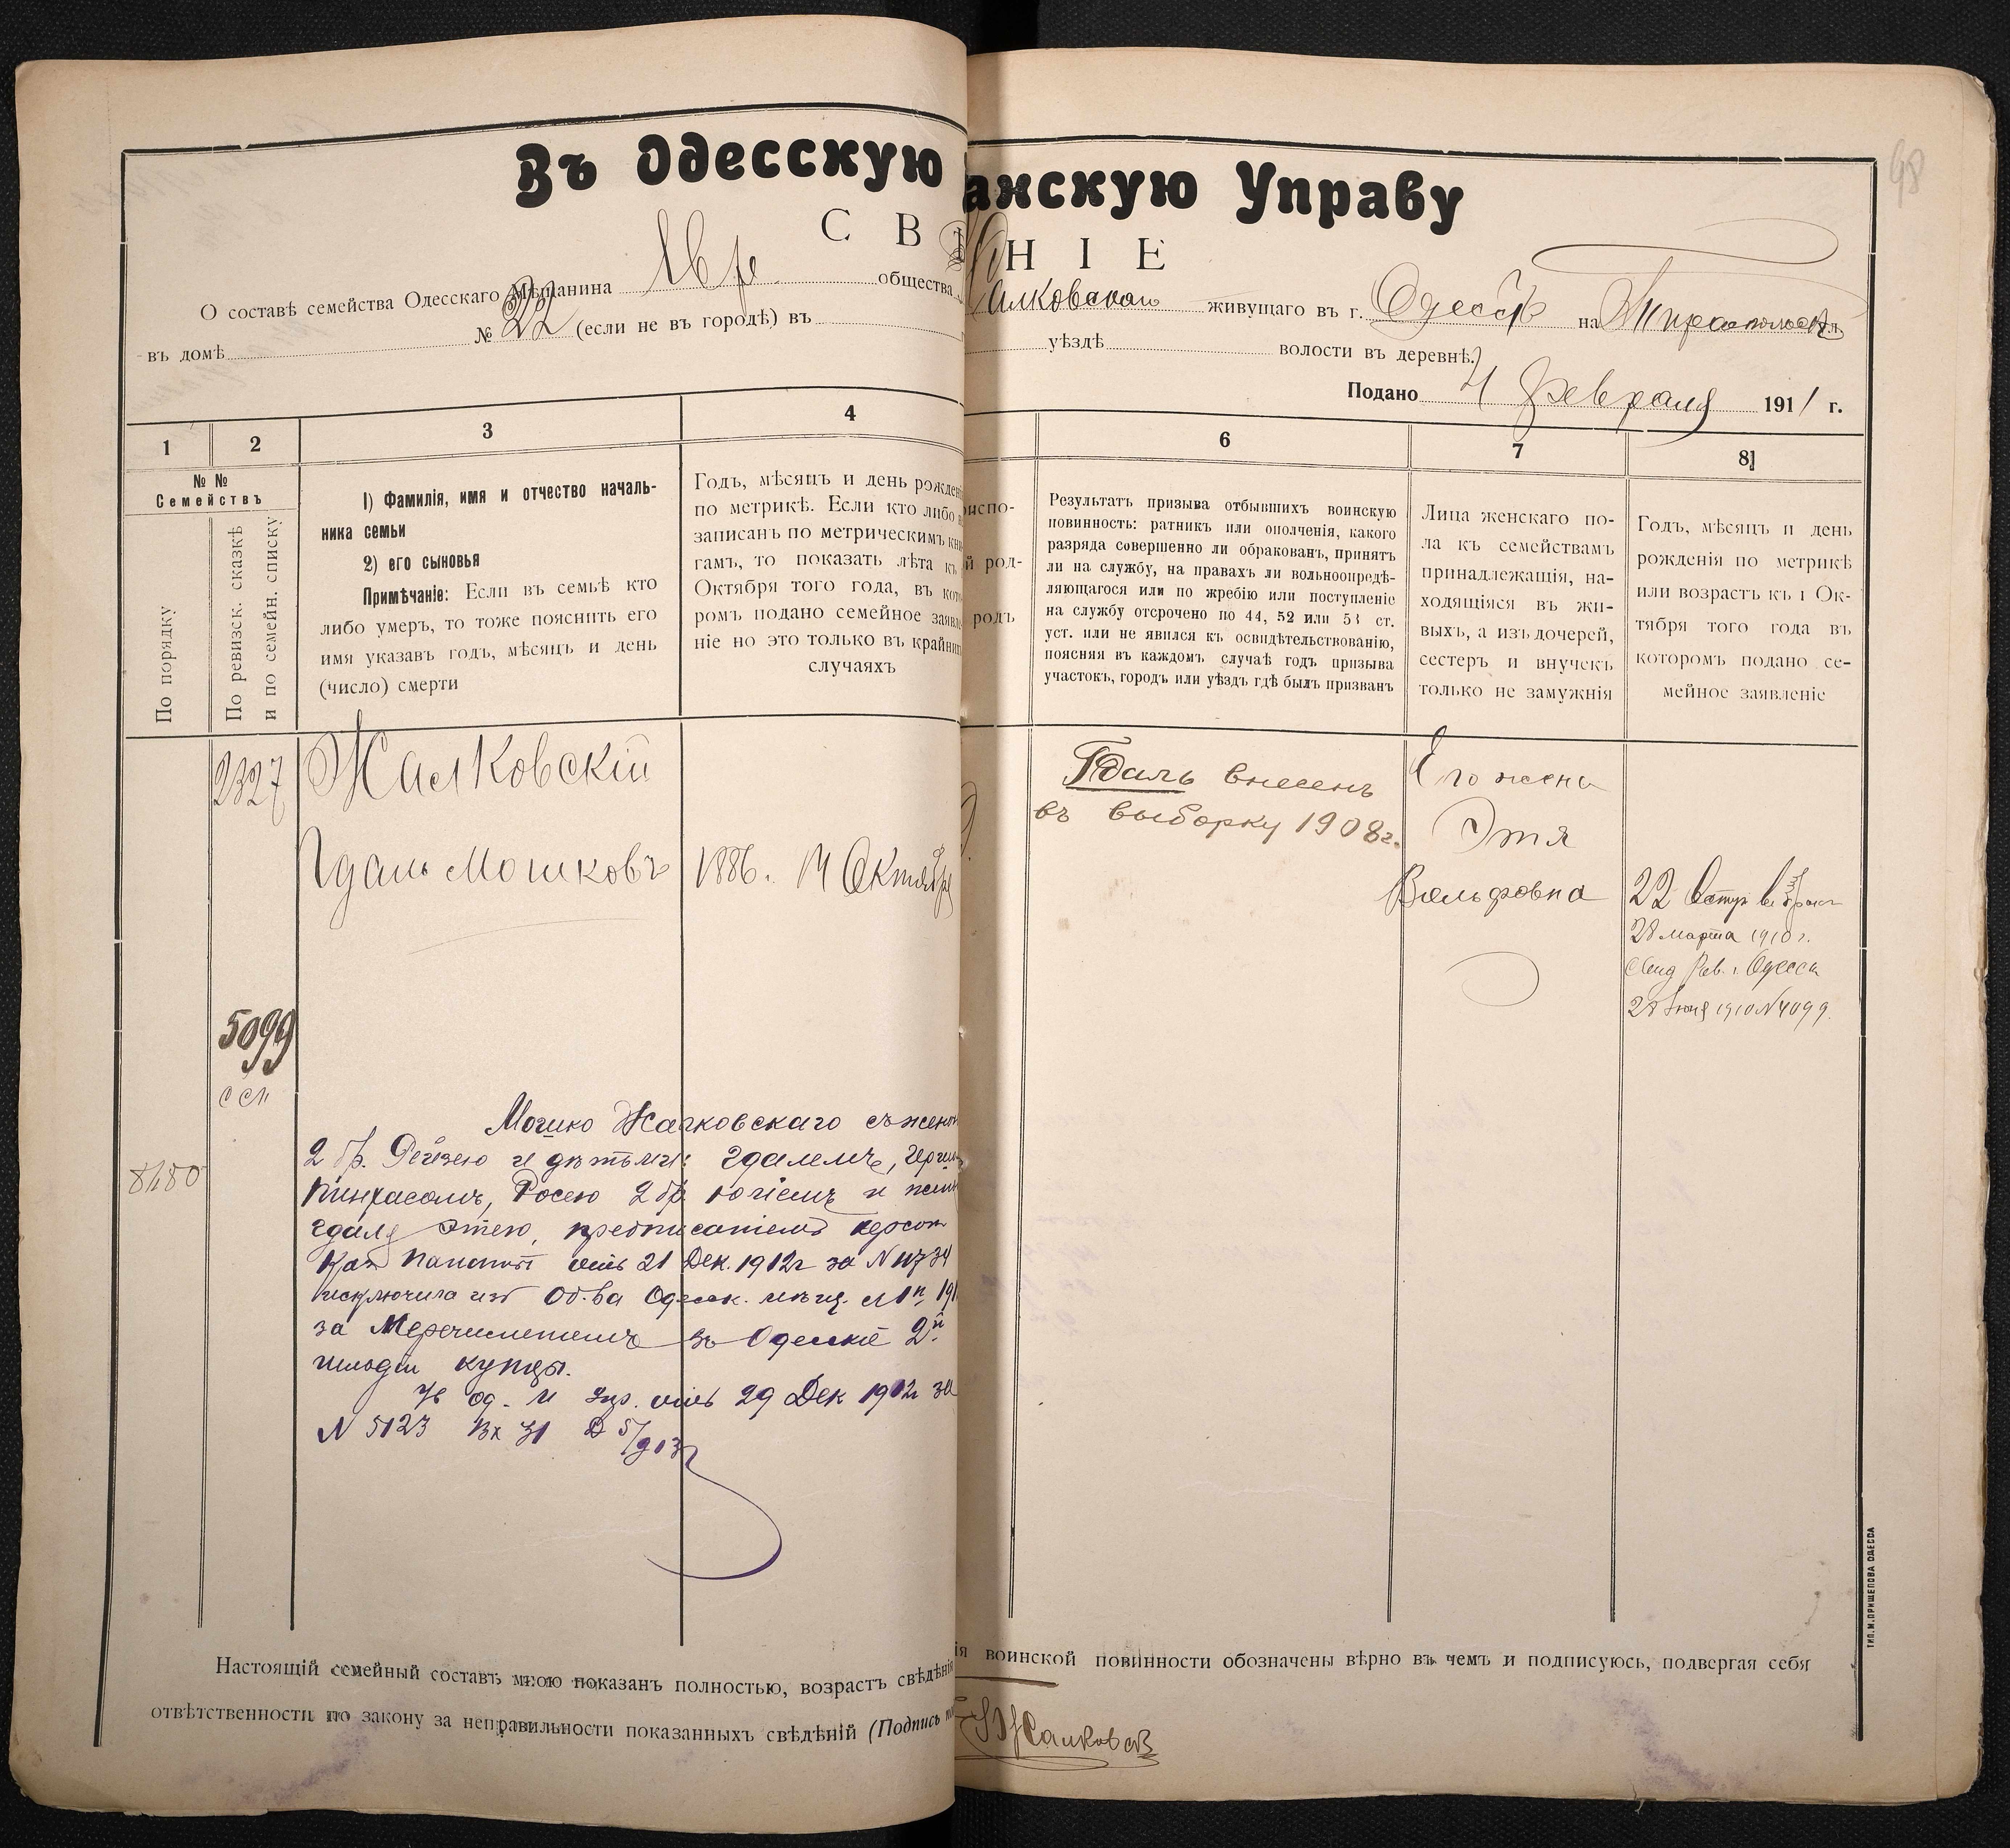 48
Въ Одесскую
анскую Управу
С В
Н І Е
О составѣ семейства Одесскаго Мѣщанина Евр. общества
алковскаго живущаго въ г. Одессѣ на Тираспольской ул.
въ домѣ № 22 (если не въ городѣ) въ
уѣздѣ волости въ деревнѣ
Подано 4 Февраля 1911 г.
1
2
3
4
6
7
8
№ №
Семействъ
По порядку
По ревизск. сказкѣ
и по семейн. списку
1) Фамилія, имя и отчество началь-
ника семьи
2) его сыновья
Примѣчаніе: Если въ семьѣ кто
либо умеръ, то тоже пояснить его
имя указавъ годъ, мѣсяцъ и день
(число) смерти
Годъ, мѣсяцъ и день рожден
по метрикѣ. Если кто либо
записанъ по метрическимъ кни
гамъ, то показать лѣта къ
Октября того года, въ кото
ромъ подано семейное заявле
ніе но это только въ крайнихъ
случаяхъ
испо-
й род-
родъ
Результатъ призыва отбывшихъ воинскую
повинность: ратникъ или ополченія, какого
разряда совершенно ли обракованъ, принятъ
ли на службу, на правахъ ли вольноопредѣ-
ляющагося или по жребію или поступленіе
на службу отсрочено по 44, 52 или 53 ст.
уст. или не явился къ освидѣтельствованію,
поясняя въ каждомъ случаѣ годъ призыва
участокъ, городъ или уѣздъ гдѣ былъ призванъ
Лица женскаго по-
ла къ семействамъ
принадлежащія, на-
ходящіяся въ жи-
выхъ, а изъ дочерей,
сестеръ и внучекъ
только не замужнія
Годъ, мѣсяцъ и день
рожденія по метрикѣ
или возрастъ къ 1 Ок-
тября того года въ
которомъ подано се-
мейное заявленіе
2327
Жалковскій
Гдаль Мошковъ
1886. 14 Октября
Гдаль внесенъ
въ выборку 1908 г.
Его жена
Этя
Вольфовна
22 Вступ. въ бракъ
28 марта 1910 г.
Рав. г. Одессы
28 Іюня 1910 № 4099.
5099
8480
Мошко Жалковскаго съ женою
2 бр. Рейзею и дѣтьми: Гдалемъ, Герш
Пинхасомъ, Росею 2 бр. и жен
Гдаля Этею, предписаніемъ Херсон
Каз. Палаты отъ 21 Дек. 1912 г за № 11734
исключила изъ Об-ва Одесск. мѣщ. с 1 п. 191
за перечисленіемъ въ Одесскіе 2й
гильдіи купцы.
отъ 29 Дек 1912 г за
N 5123 Вх 31 Д 5/913
Настоящій семейный составъ мною показанъ полностью, возрастъ свѣдѣнія
ія воинской повинности обозначены вѣрно въ чемъ и подписуюсь, подвергая себя
отвѣтственности по закону за неправильности показанныхъ свѣдѣній (Подпись
Жалковскій
ТИП. М. ПРИЩЕПОВА ОДЕССА